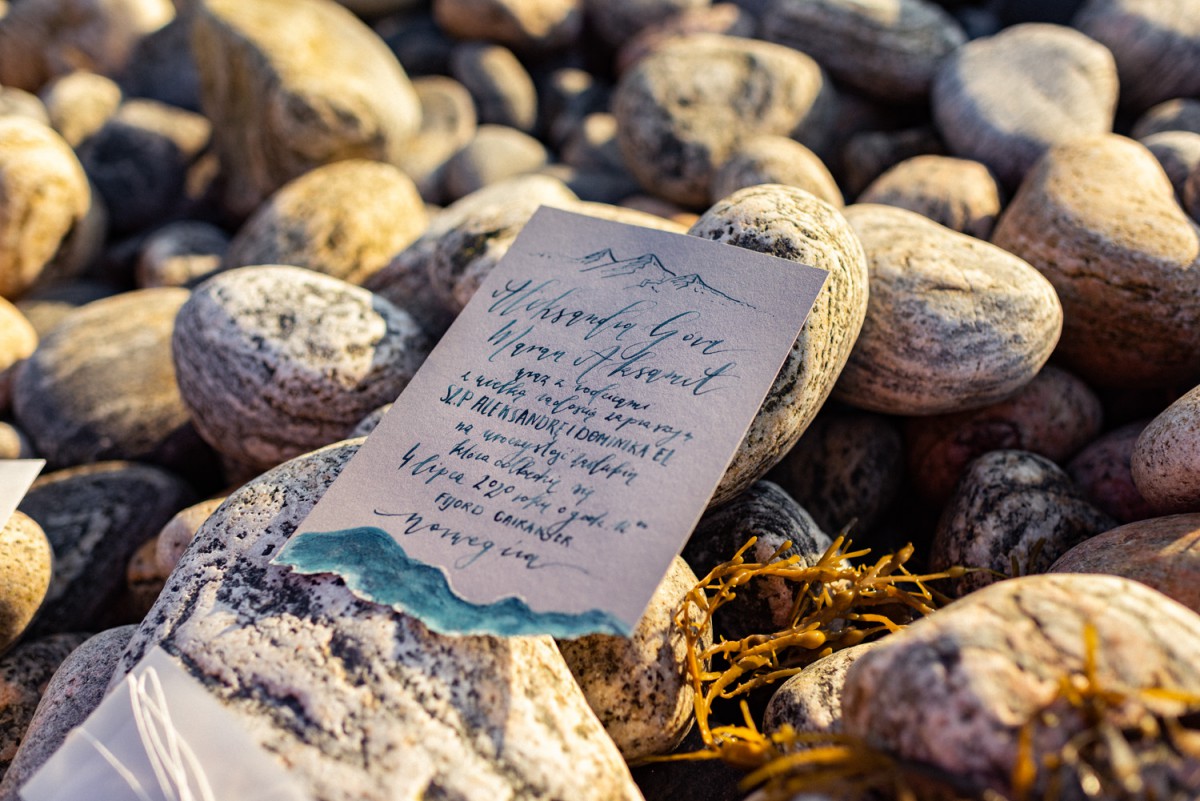 Aleksandra Góra
Maran Aksamit
wraz z rodzicami
z wielką radością zapraszają
SZ.P ALEKSANDRĘ I DOMINIKA EL
na uroczystość zaślubin
która odbędzie się
4 lipca 2020 roku o godz.
FIJORD GAIRANGER
Norwegia